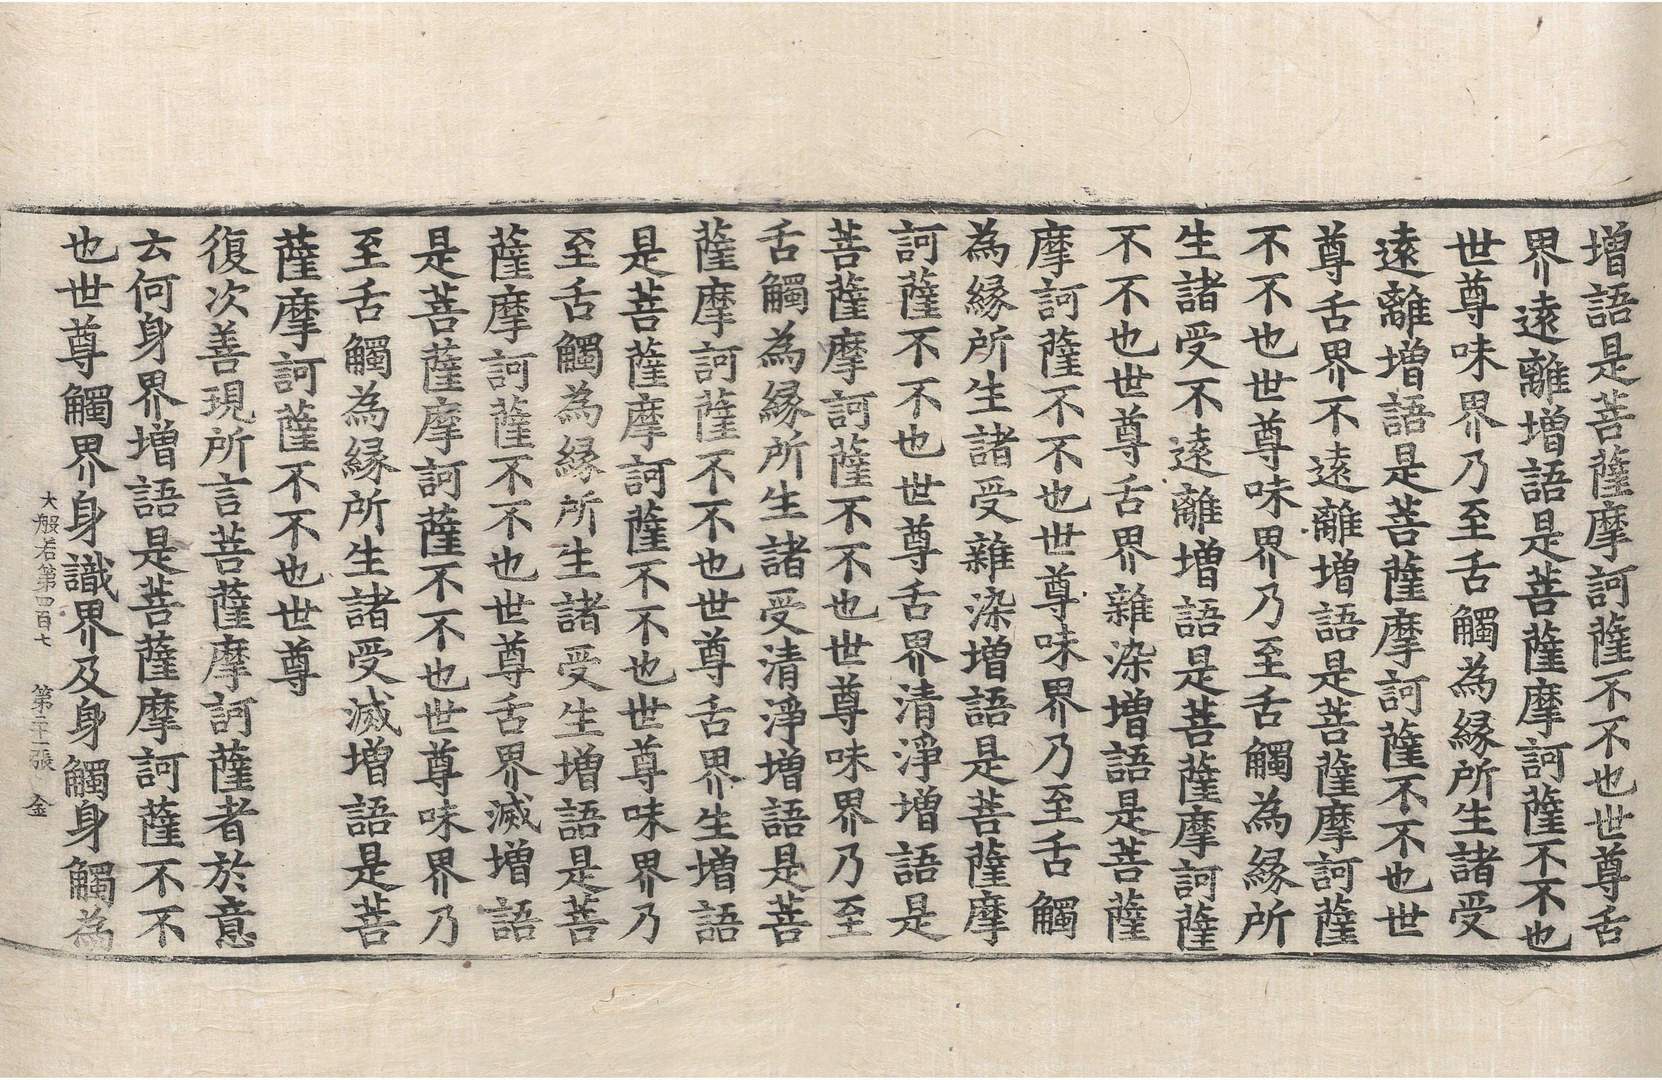 增語是菩薩摩訶薩不不也世尊舌
界遠離增語是菩薩摩訶薩不不也
世尊味界乃至舌觸為緣所生諸受
遠離增語是菩薩摩訶薩不不也世
尊舌界不遠離增語是菩薩摩訶薩
不不也世尊味界乃至舌觸為緣所
生諸受不遠離增語是菩薩摩訶薩
不不也世尊舌界雜染增語是菩薩
摩訶薩不不也世尊味界乃至舌觸
為緣所生諸受雜染增語是菩薩摩
訶薩不不也世尊舌界清淨增語是
菩薩摩訶薩不不也世尊味界乃至
舌觸為緣所生諸受清淨增語是菩
薩摩訶薩不不也世尊舌界生增語
是菩薩摩訶薩不不也世尊味界乃
至舌觸為緣所生諸受生增語是菩
薩摩訶薩不不也世尊舌界滅增語
是菩薩摩訶薩不不也世尊味界乃
至舌觸為緣所生諸受滅增語是菩
薩摩訶薩不不也世尊
復次善現所言菩薩摩訶薩者於意
云何身界增語是菩薩摩訶薩不不
也世尊觸界身識界及身觸身觸為
大般若第四百七 第二十一張 金